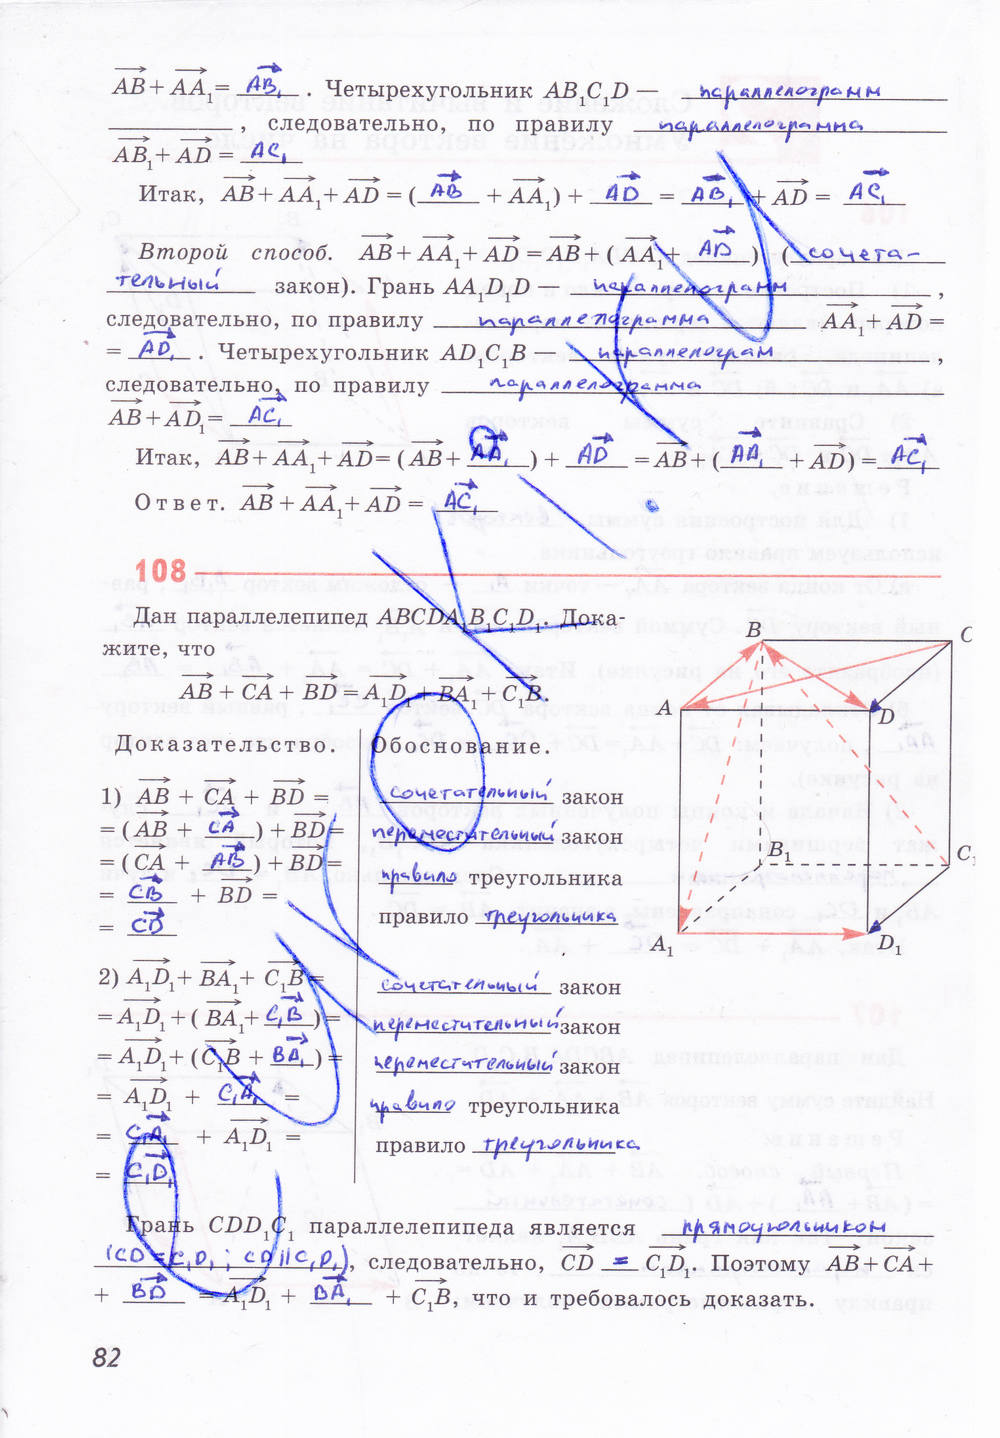 AB + AA₁ = AB₁ . Четырехугольник AB₁C₁D — параллелограмм
, следовательно, по правилу параллелограмма
AB₁ + AD = AC₁
Итак, AB + AA₁ + AD = ( AB + AA₁) + AD = AB₁ + AD = AC₁
Второй способ. AB + AA₁ + AD = AB + ( AA₁ + AD ) ( сочета-
тельный закон). Грань AA₁D₁D параллелограмм ,
следовательно, по правилу параллелограмма AA₁ + AD =
= AD₁ . Четырехугольник AD₁C₁B — параллелограм ,
следовательно, по правилу параллелограмма
AB + AD₁ = AC₁
Итак, AB + AA₁ + AD = ( AB + AA₁ ) + AD = AB + ( AA₁ + AD) = AC₁
Ответ. AB + AA₁ + AD = AC₁
108
Дан параллелепипед ABCDA₁B₁C₁D₁. Дока-
жите, что
AB + CA + BD = A₁D₁ + BA₁ + C₁B.
B
C
A
D
B₁
C₁
A₁
D₁
Доказательство. Обоснование.
1) AB + CA + BD = сочетательный закон
= ( AB + CA ) + BD = переместительный закон
= ( CA + AB ) + BD = правило треугольника
= CB + BD = правило треугольника
= CD
2) A₁D₁ + BA₁ + C₁B = сочетательный закон
= A₁D₁ + ( BA₁ + C₁B ) = переместительный закон
= A₁D₁ + (C₁B + BA₁ ) = переместительный закон
= A₁D₁ + C₁A₁ = правило треугольника
= CA₁ + A₁D₁ = правило треугольника
= C₁D₁
Грань CDD₁C₁ параллелепипеда является прямоугольником
(CD = C₁D₁ ; CD || C₁D₁), следовательно, CD = C₁D₁. Поэтому AB + CA +
+ BD = A₁D₁ + BA₁ + C₁B, что и требовалось доказать.
82